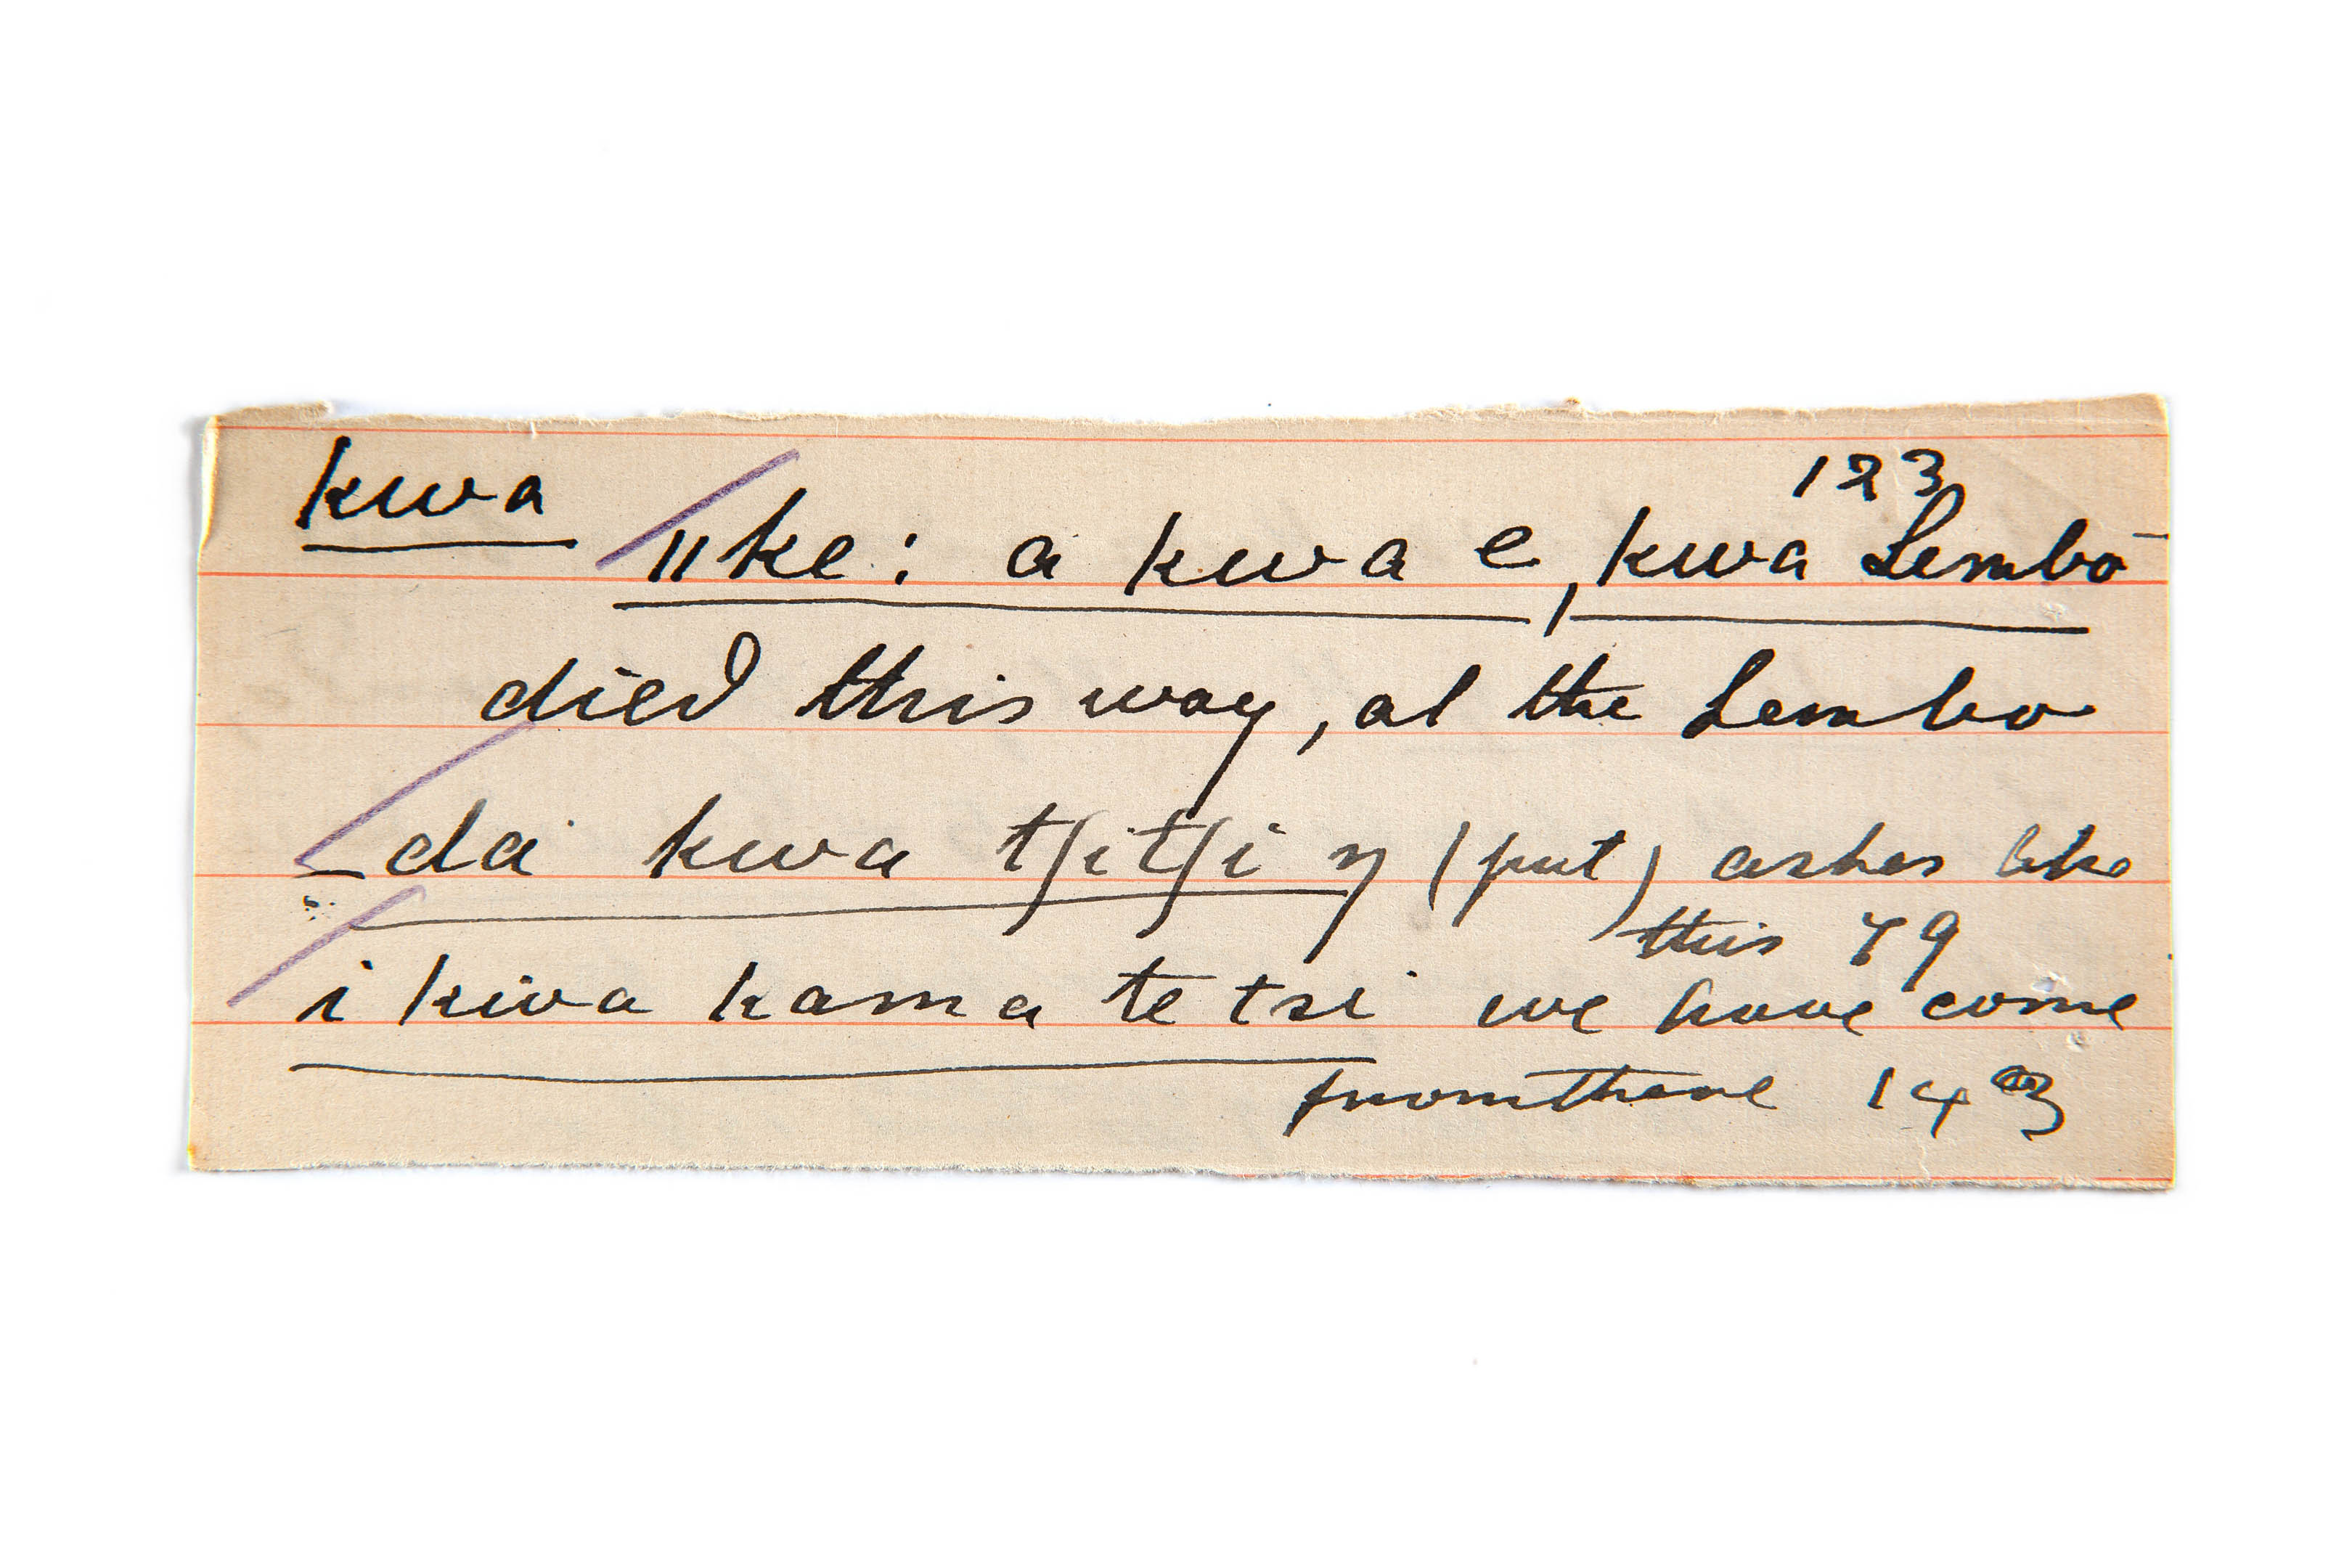 kwa 123
ǁke: a kwa e, kwa Lembo
died this way, at the Lembo
da kwa tʃitʃi ŋ (put) ashes like
this 79
i kwa kama te tsi we have come
from there 143